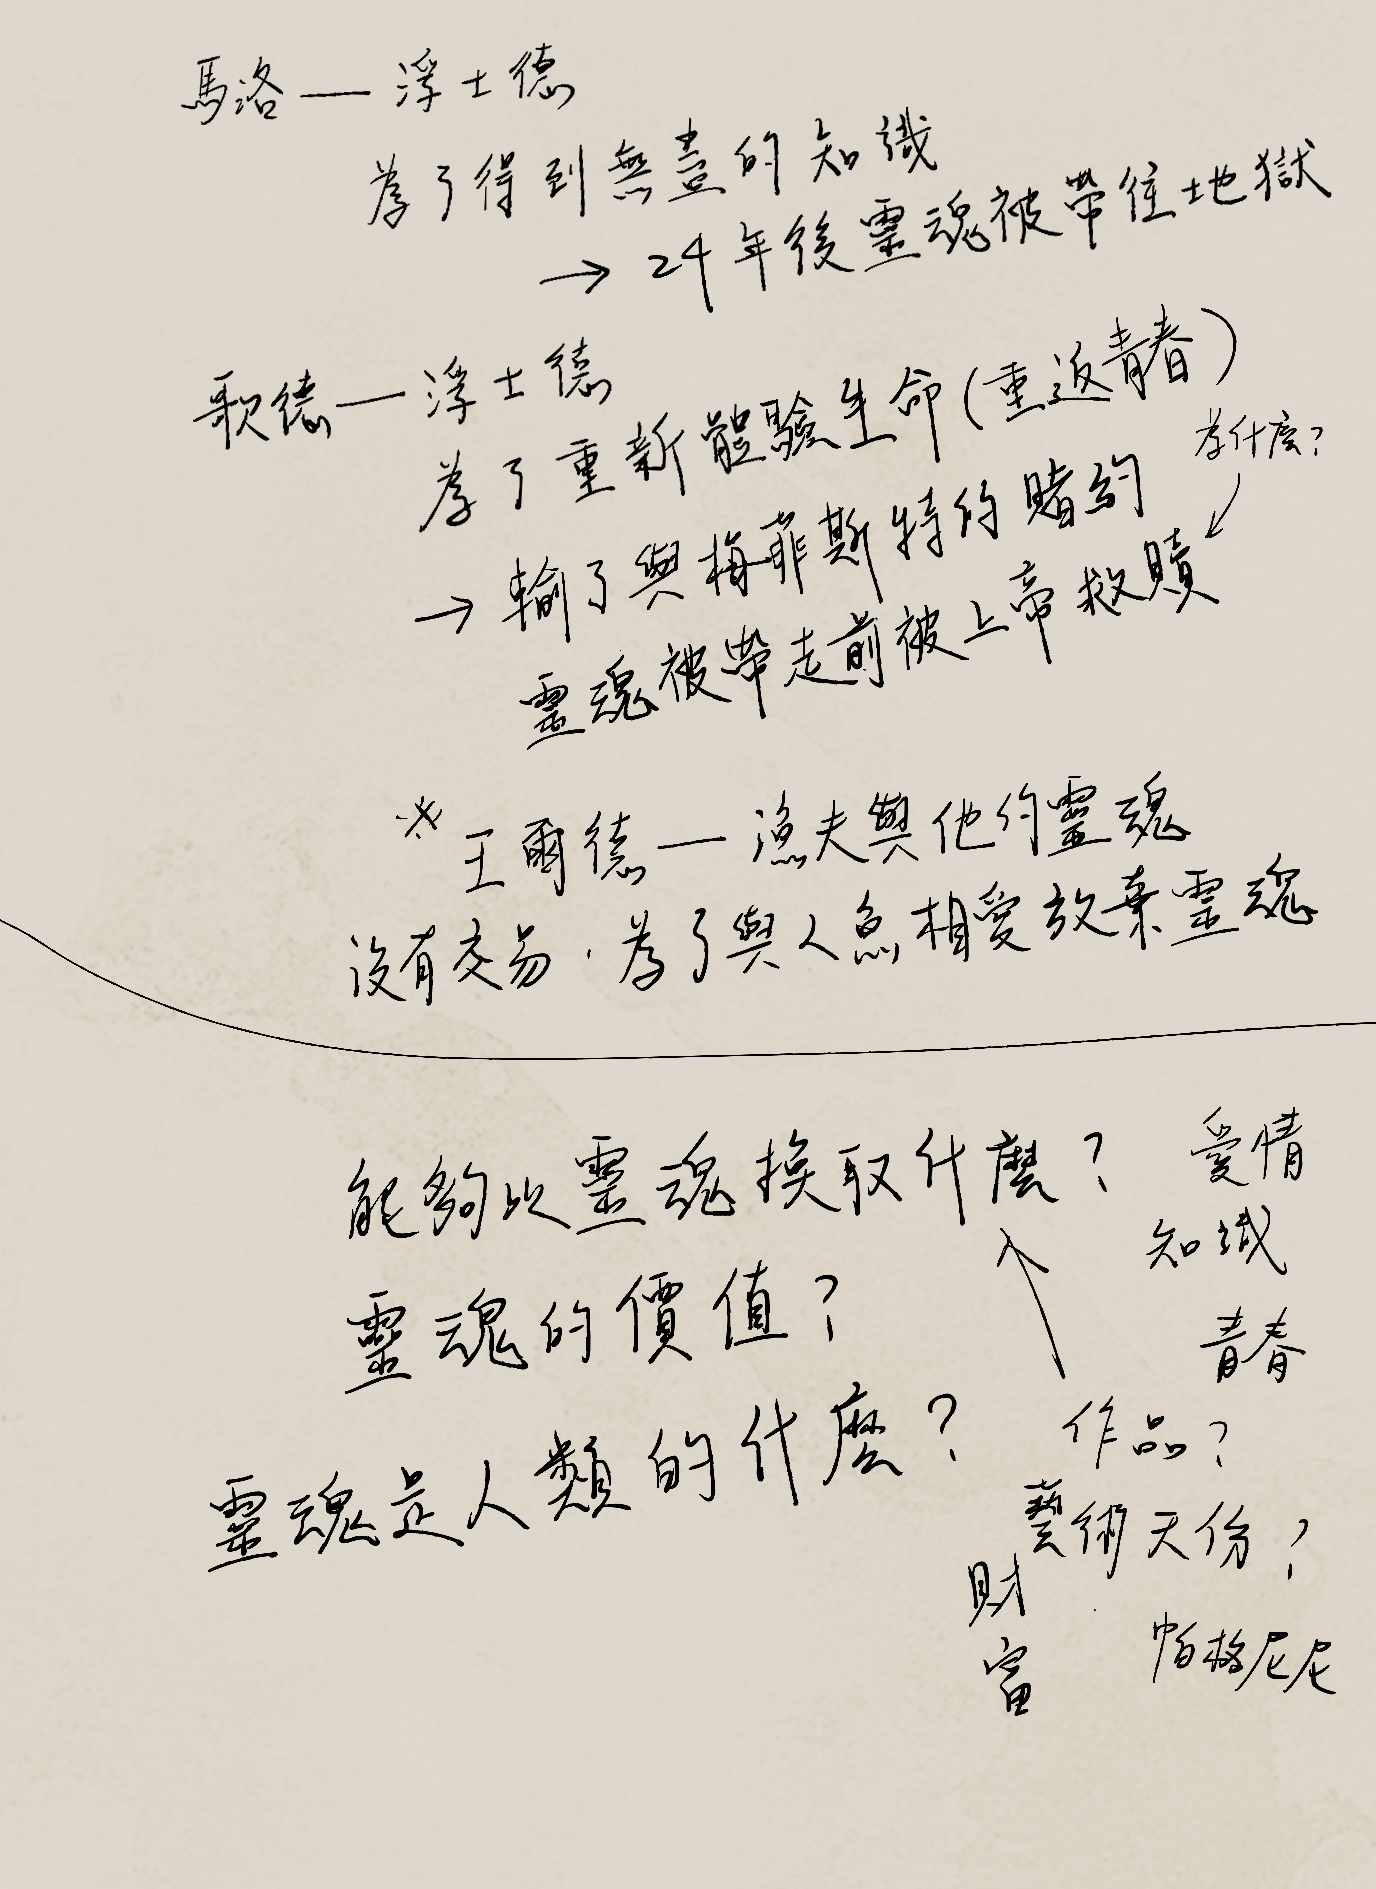 馬洛 — 浮士德
為了得到無盡的知識
→ 24年後靈魂被帶往地獄
歌德 — 浮士德
為了重新體驗生命(重返青春)
為什麼?
→ 輸了與梅菲斯特的賭約
靈魂被帶走前被上帝救贖
※ 王爾德 — 漁夫與他的靈魂
沒有交易,為了與人魚相愛放棄靈魂
能夠以靈魂換取什麼?
愛情
知識
青春
靈魂的價值?
作品?
靈魂是人類的什麼?
藝術天份?
財富
帕格尼尼